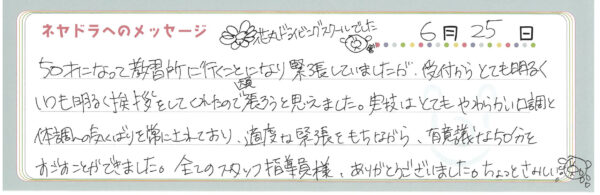 ネヤドラへのメッセージ 花丸ドライビングスクールでした 6月25日
50才になって教習所に行くことになり緊張していましたが、受付からとても明るく
いつも明るく挨拶をしてくれたので頑張ろうと思えました。実技はとてもやわらかい口調と
体調への気くばりを常にされており、適度な緊張をもちながら、有意義な50分を
すごすことができました。全てのスタッフ指導員様、ありがとうございました。ちょっとさみしい